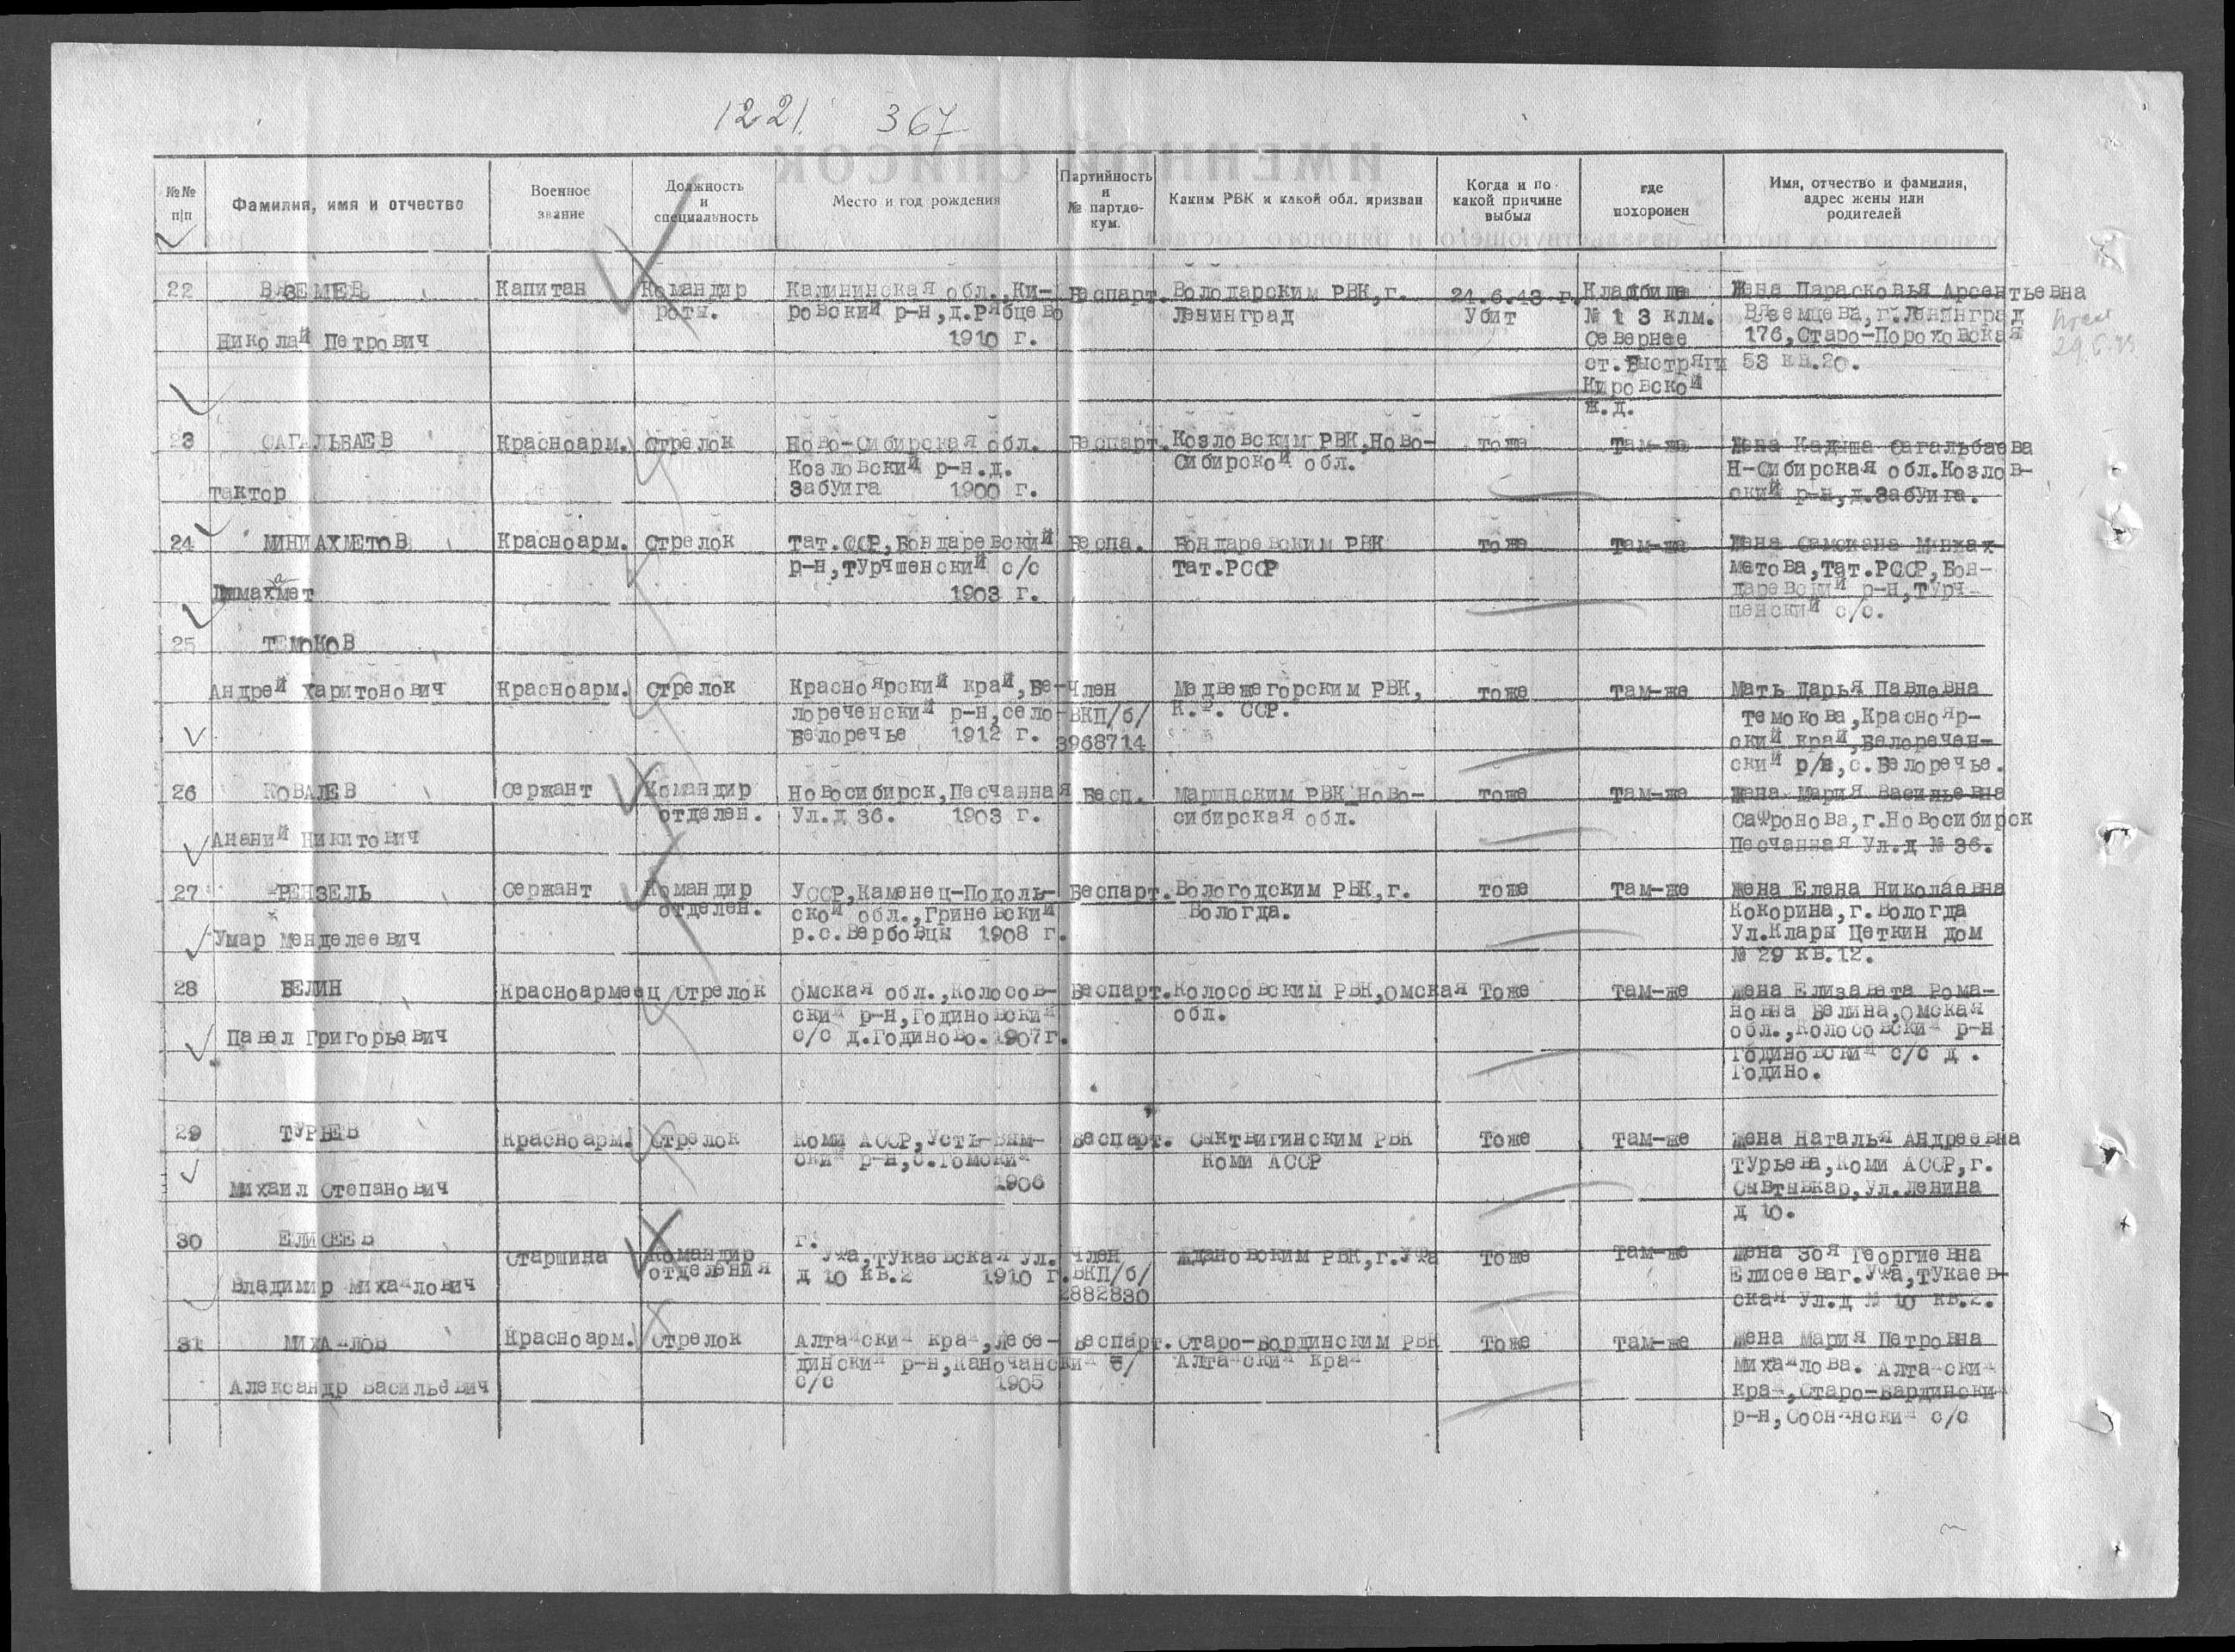 1221. 367
№№ п|п
Фамилия, имя и отчество
Военное звание
Должность и специальность
Место и год рождения
Партийность и № партдо-кум.
Каким РВК и какой обл. призван
Когда и по какой причине выбыл
где похоронен
Имя, отчество и фамилия, адрес жены или родителей
22 ВЯЗЕМЦЕВ Капитан Командир Калининская обл.,Ки- Беспарт. Володарским РВК,г. 21.6.43 г. Кладбище Жена Парасковья Арсентьевна
роты. ровский р-н,д.Рябцево Ленинград Убит № 1 3 клм. Вяземцева,г.Ленинград
Николай Петрович 1910 г. Севернее 176,Старо-Пороховская
ст.Быстряги 53 кв.20.
Кировской
ж.д.
23 САГАЛЬБАЕВ Красноарм. Стрелок Ново-Сибирская обл. Беспарт. Козловским РВК,Ново- тоже там-же Жена Кадыша Сагальбаева
Козловский р-н.д. Сибирской обл. Н-Сибирская обл.Козлов-
тактор Забуига 1900 г. ский р-н,д.Забуига.
24 МИНИАХМЕТОВ Красноарм. Стрелок Тат.ССР,Бондаревский Беспа. Бондаревским РВК тоже там-же Жена
р-н,Турчшенский с/с Тат.РССР метова,Тат.РССР,Бон-
1903 г. даревский р-н,Турч-
шенский с/с.
25 ТЕМОКОВ
Андрей Харитонович Красноарм. Стрелок Красноярский край,Бе- Член Медвежегорским РВК, тоже там-же Мать Дарья Павловна
лореченский р-н,село- ВКП/б/ К.Ф. ССР. Темокова,Краснояр-
Белоречье 1912 г. 3968714 ский край,Белоречен-
ский р/н,с.Белоречье.
26 КОВАЛЕВ Сержант Командир Новосибирск,Песчанная Бесп. Мариинским РВК Ново- тоже там-же Жена Мария Васильевна
отделен. Ул.д 36. 1903 г. сибирская обл. Сафронова,г.Новосибирск
Ананий Никитович Песчанная Ул.д № 36.
27 РЕНЗЕЛЬ Сержант Командир УССР,Каменец-Подоль- Беспарт. Вологодским РВК,г. тоже там-же Жена Елена Николаевна
отделен. ской обл.,Гриневский Вологда. Кокорина,г.Вологда
Умар Менделеевич р.с.Вербовцы 1908 г. Ул.Клары Цеткин дом
№ 29 кв.12.
28 БЕЛИН Красноармеец Стрелок Омская обл.,Колосов- Беспарт. Колосовским РВК,Омская Тоже там-же Жена Елизавета Рома-
ский р-н,Годиновский обл. новна Белина,Омская
Павел Григорьевич с/с д.Годиново.1907г. обл.,Колосовский р-н
Годиновский с/с д .
Годино.
29 ТУРЬЕВ Красноарм. Стрелок Коми АССР,Усть-Вым- Беспарт. Сыктвигинским РВК Тоже там-же Жена Наталья Андреевна
ский р-н,с.Гомский Коми АССР Турьева,Коми АССР,г.
Михаил Степанович 1906 Сывтывкар,Ул.Ленина
д 10.
30 ЕЛИСЕЕВ Старшина Командир г. Уфа,Тукаевская Ул. Член Ждановским РВК,г.Уфа Тоже там-же Жена Зоя Георгиевна
отделения д 10 кв.2 1910 г. ВКП/б/ Елисееваг.Уфа,Тукаев-
Владимир Михайлович 2882830 ская Ул.д № 10 кв.2.
31 МИХАЙЛОВ Красноарм. Стрелок Алтайский край,Лебе- Беспарт. Старо-Бординским РВК Тоже там-же Жена Мария Петровна
динский р-н,Каночанский б/ Алтайский край Михайлова. Алтайский
Александр Васильевич с/с 1905 край,Старо-Бардинский
р-н,Соснянский с/с